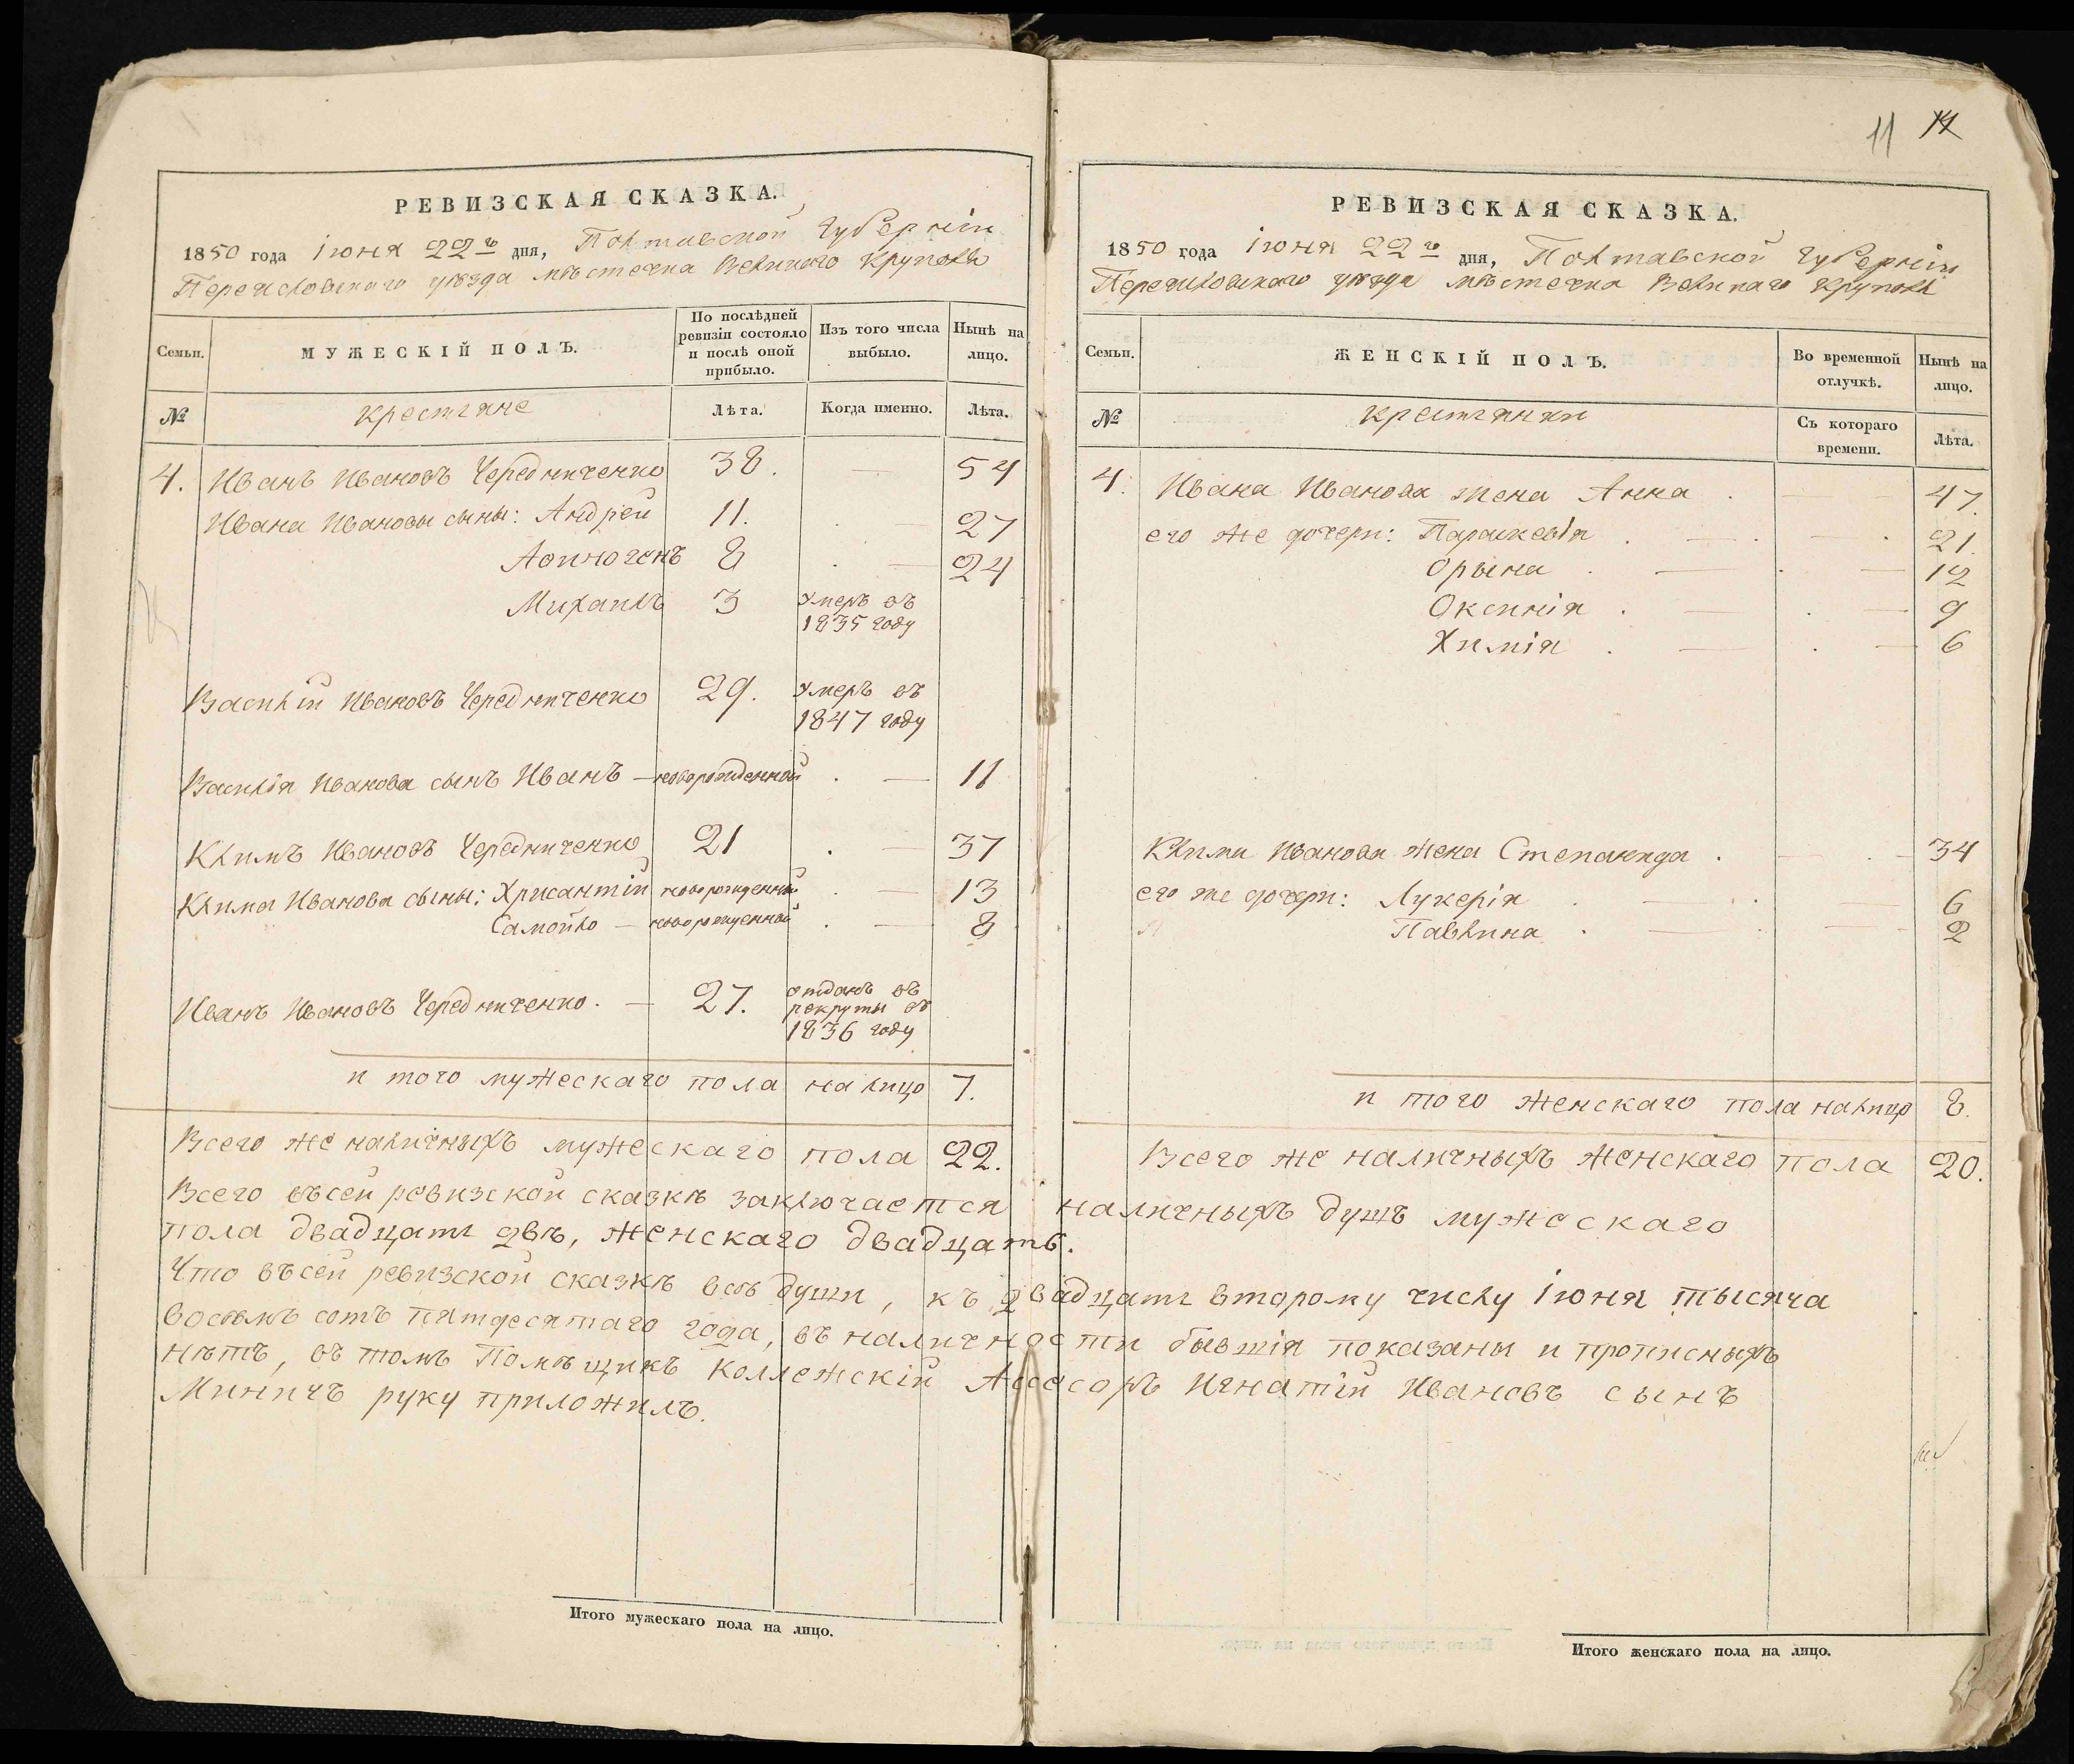 11
РЕВИЗСКАЯ СКАЗКА.
1850 года Іюня 22го дня, Полтавской Губерніи
Переяславскаго уѣзда мѣстечка Великаго Крупола
Семьи.
МУЖЕСКІЙ ПОЛЪ.
По послѣдней ревизіи состояло и послѣ оной прибыло.
Изъ того числа выбыло.
Нынѣ на лицо.
№
Крестьяне
Лѣта.
Когда именно.
Лѣта.
4. Иванъ Ивановъ Чередниченко 38. — 54
Ивана Иванова сыны: Андрей 11. 27
8 — 24
Михаилъ 3 умеръ въ
1835 году
Василій Ивановъ Чередниченко 29. умеръ въ
1847 году
Василія Иванова сынъ Иванъ — новорожденной — 11
Климъ Ивановъ Чередниченко 21 — 37
Клима Иванова сыны: Хрисантій новорожденный — 13
Самойло — новорожденной — 8
Иванъ Ивановъ Чередниченко. — 27. отданъ въ
рекруты въ
1836 году
и того мужескаго пола на лицо 7.
Всего же наличныхъ мужескаго пола 22.
РЕВИЗСКАЯ СКАЗКА.
1850 года Іюня 22го дня, Полтавской Губерніи
Переяславскаго уѣзда мѣстечка Великаго Крупола
Семьи.
ЖЕНСКІЙ ПОЛЪ.
Во временной отлучкѣ.
Нынѣ на лицо.
№
Крестьянки
Съ котораго времени.
Лѣта.
4. Ивана Иванова жена Анна . — 47.
его же дочери: Параскевія . — . — . 21.
Орына . — . — 12
Оксинія . — . — 9
Химія . — . — 6
Клима Иванова жена Степанида . — . — 34
его же дочери: Лукерія . — . — 6
Павлина . — . — 2
и того женскаго пола налицо 8.
Всего же наличныхъ женскаго пола 20.
Всего въсей ревизской сказкѣ заключается наличныхъ душъ мужескаго
пола двадцать двѣ, женскаго двадцать.
Что въсей ревизской сказкѣ всѣ души, къ двадцать второму числу Іюня тысяча
восемь сотъ пятдесятаго года, въ наличности бывшія показаны и прописныхъ
нѣтъ, въ томъ Помѣщикъ Коллежскій Ассесоръ Игнатій Ивановъ сынъ
Миничъ руку приложилъ.
Итого мужескаго пола на лицо.
Итого женскаго пола на лицо.